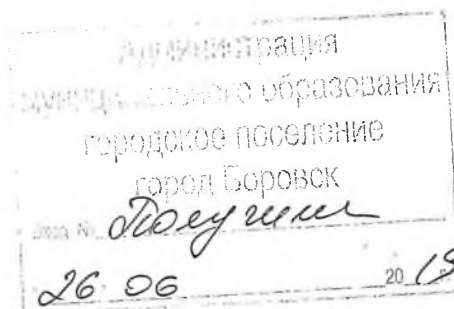 Администрация
муниципального образования
городское поселение
город Боровск
Вход. №
26 06 20